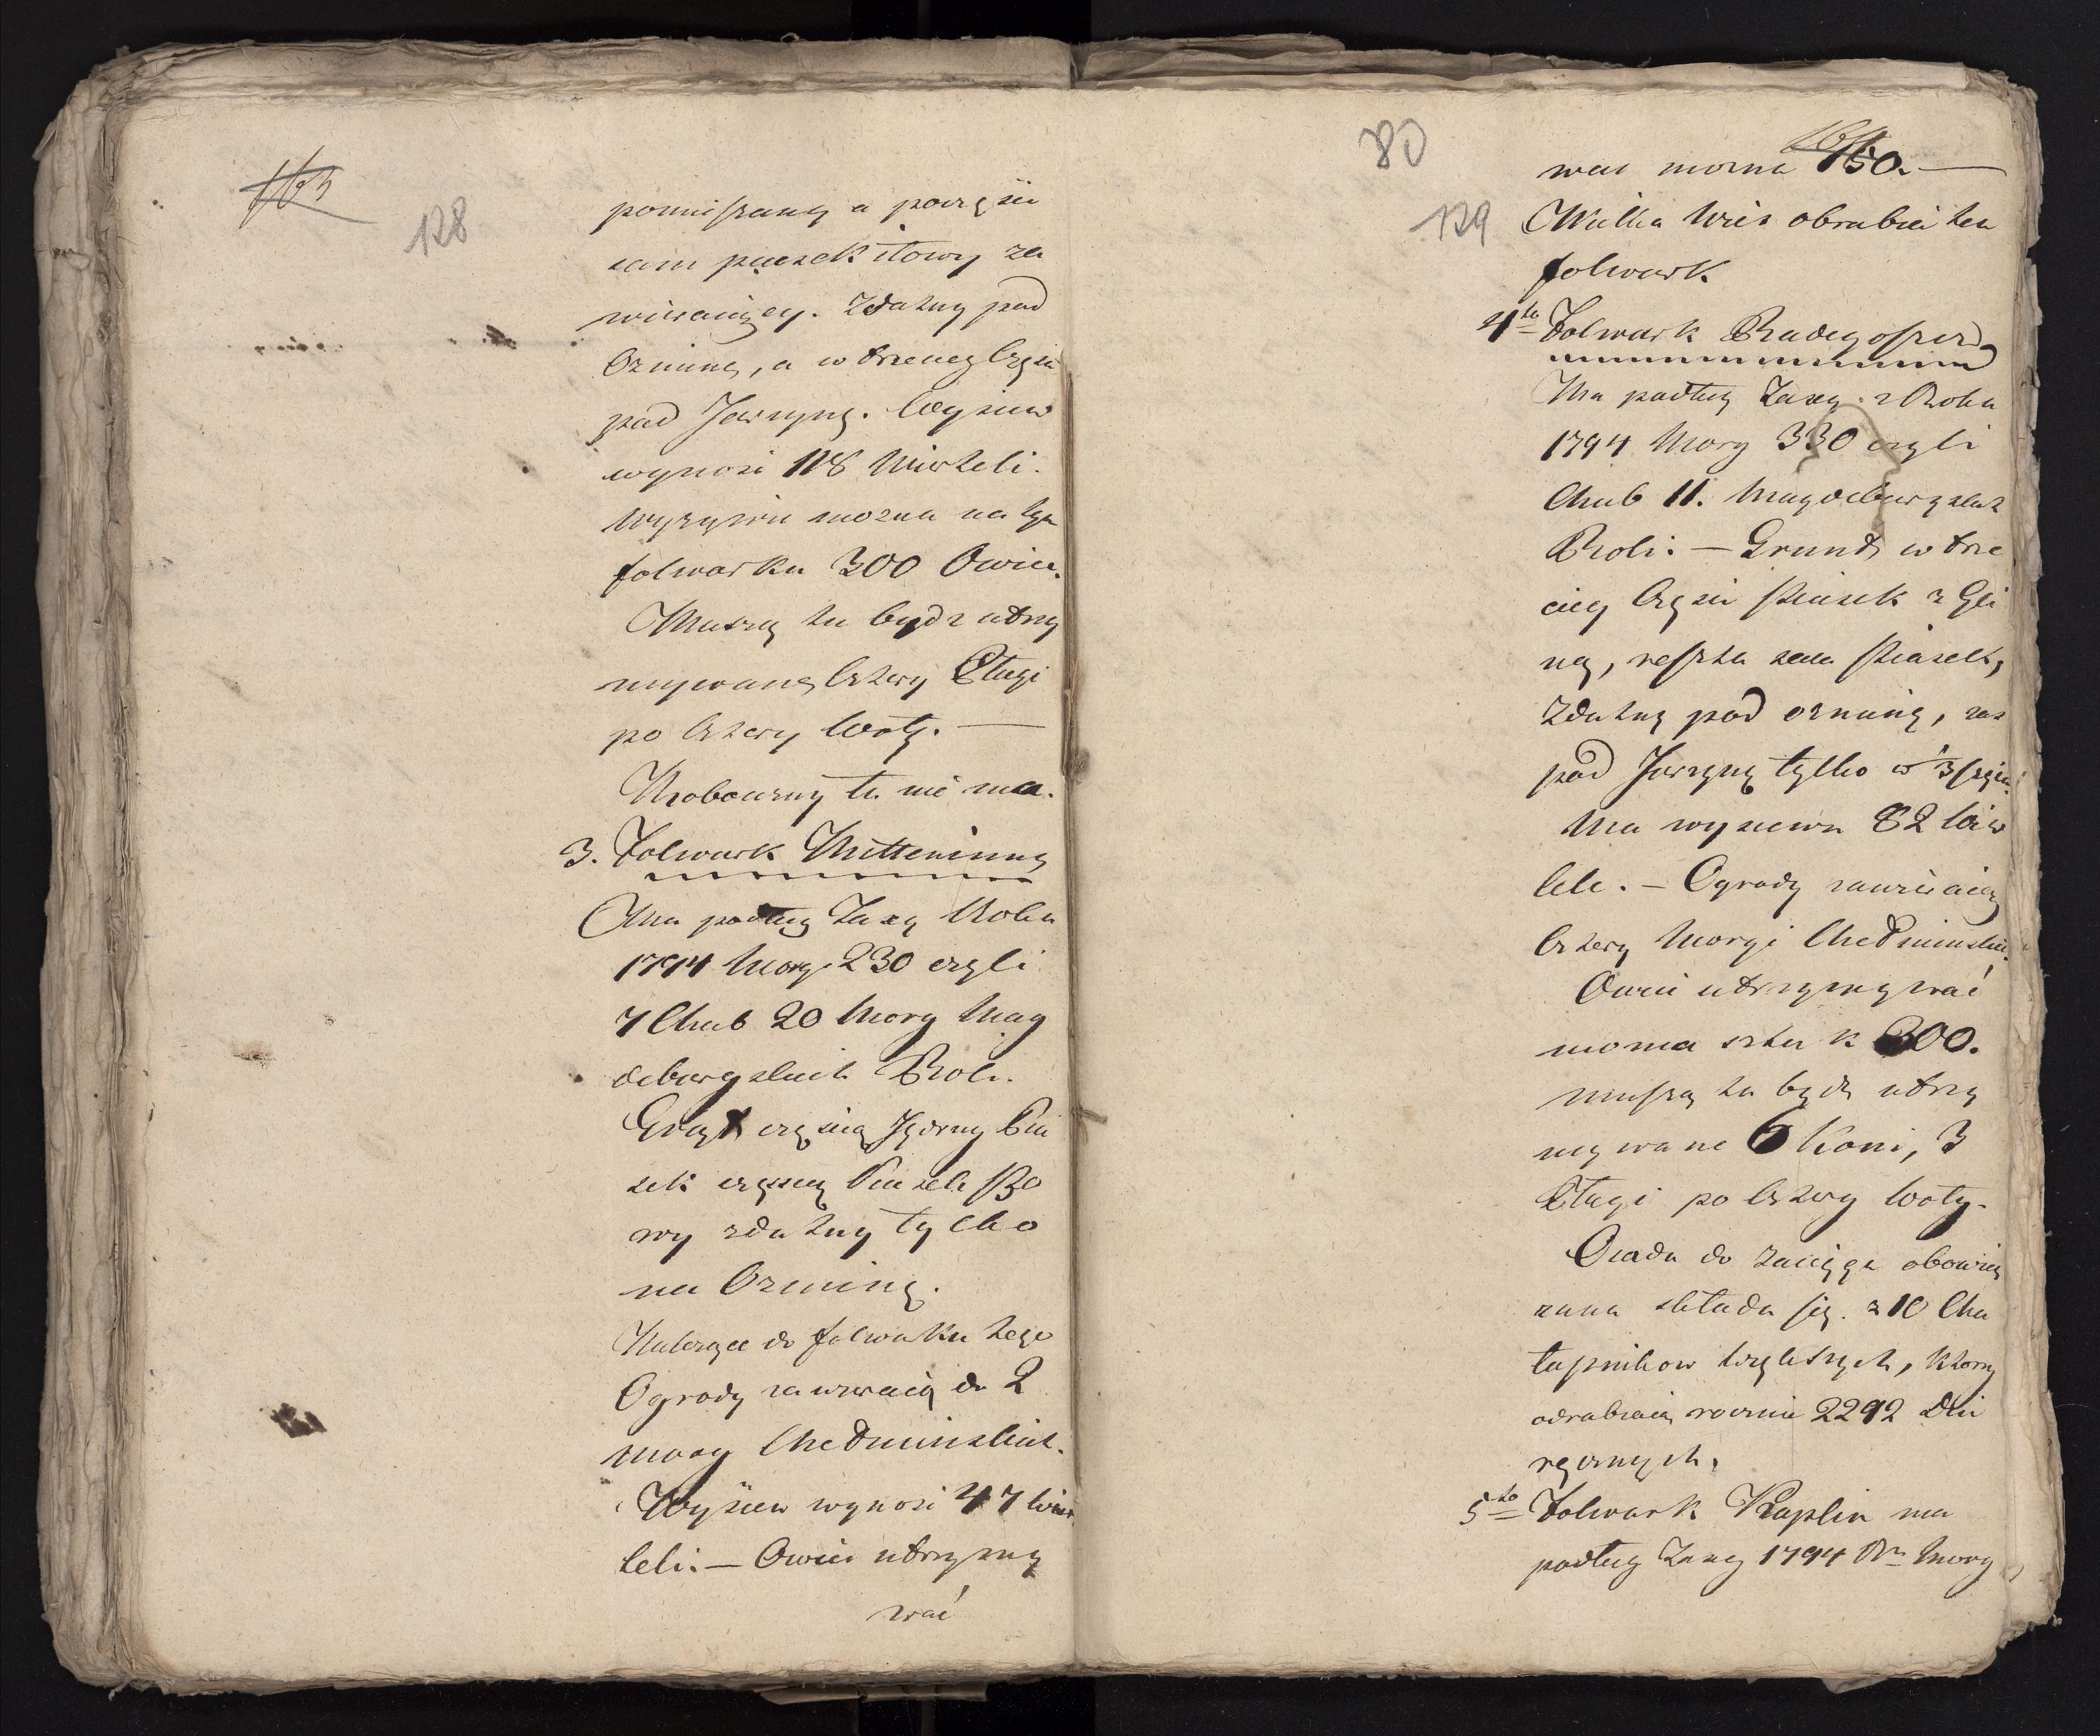 163
128
pomiszany a poczęsci
sam piasek iłowy za
wieraiący. Zdatny pod
Ozminę, a w trzeciey Części
pod Jarzynę. Wysiew
wynosi 118 Wierteli.
Wyżywić można na tym
folwarku 300 Owiec.
Muszą tu bydz utrzy
mywane Cztery Pługi
po Cztery Woły. —
Robocizny tu nie ma.
3. Folwark Mitteninng
Ma podług Taxy Roku
1794 Morg 230 czyli
7 Chub 20 Morg Mag
deburgskich Roli.
częścią Pia
sek częścią Piasek
wy zdatny tylko
na Ozminę.
Należące do folwarku tego
Ogrody zawieraią do 2
morg Chełminskich.
Wysiew wynosi 47 Wier
teli. — Owiec utrzymy
wać
80
164
wać można 150. —
129
Wulka Wies obrabia ten
folwark
4to Folwark Radegoszcz
Ma podług Taxy z Roku
1794 Morg 330 czyli
Chub 11. Magdeburgskich
Roli. — Grunt w trze
ciey Części Piasek z Gli
ną, reszta Piasek,
Zdatny pod ozminę, zas
pod Jarzynę tylko w 1/3 części.
Ma wysiewu 82 Wier
tele. — Ogrody zawieraią
Cztery Morgi Chełminskie.
Owiec utrzymywać
można sztuk 300.
muszą tu bydz utrzy
mywane 6 Koni, 3
Pługi po Cztery Woły.
Osada do Zaciągu obowią
zana składa się z 10 Cha
łupnikow tuteyszych, ktorzy
odrabiaią rocznie 2292 Dni
ręcznych.
5to Folwark Kaplin ma
podług Taxy 1794 Ru Morg